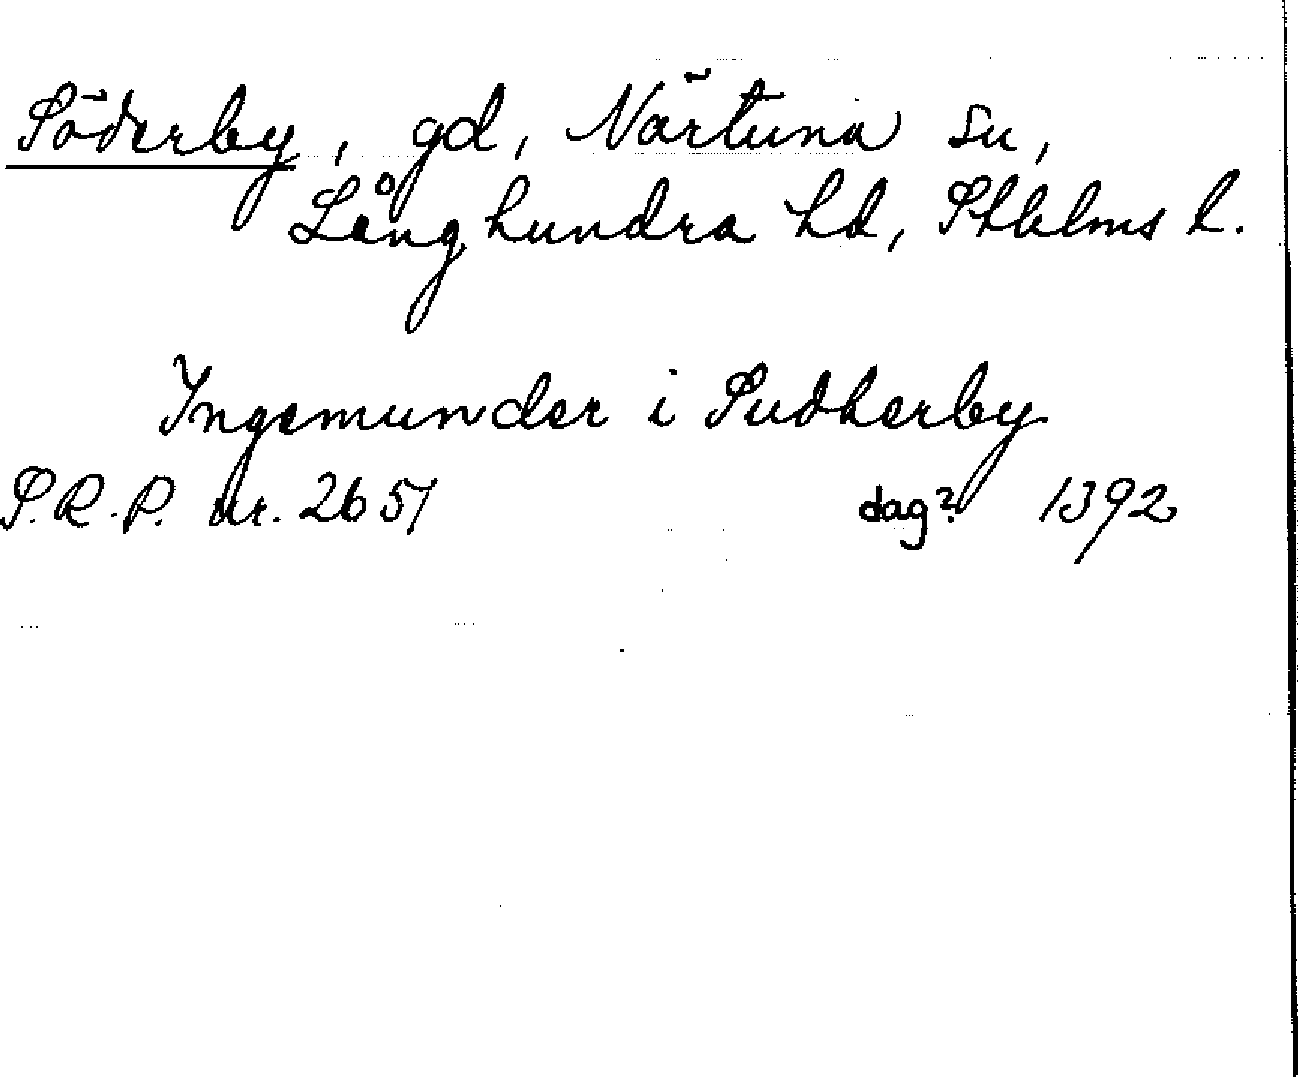 Söderby, gd, Närtuna sn,
Långhundra hd, Sthlms l.
Ingemunder i Sudherby
S.R.P. nr. 2651 dag? 1392